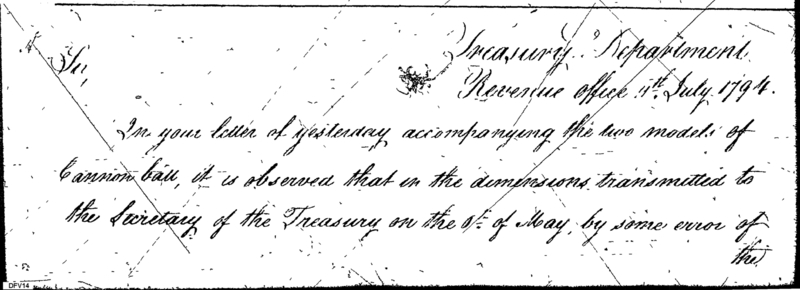 Treasury Department
Sir,
Revenue office 4th. July 1794.
In your letter of yesterday accompanying the two models of
Cannon ball, it is observed that in the dimensions transmitted to
the Secretary of the Treasury on the of May, by some error of
the
DFV14